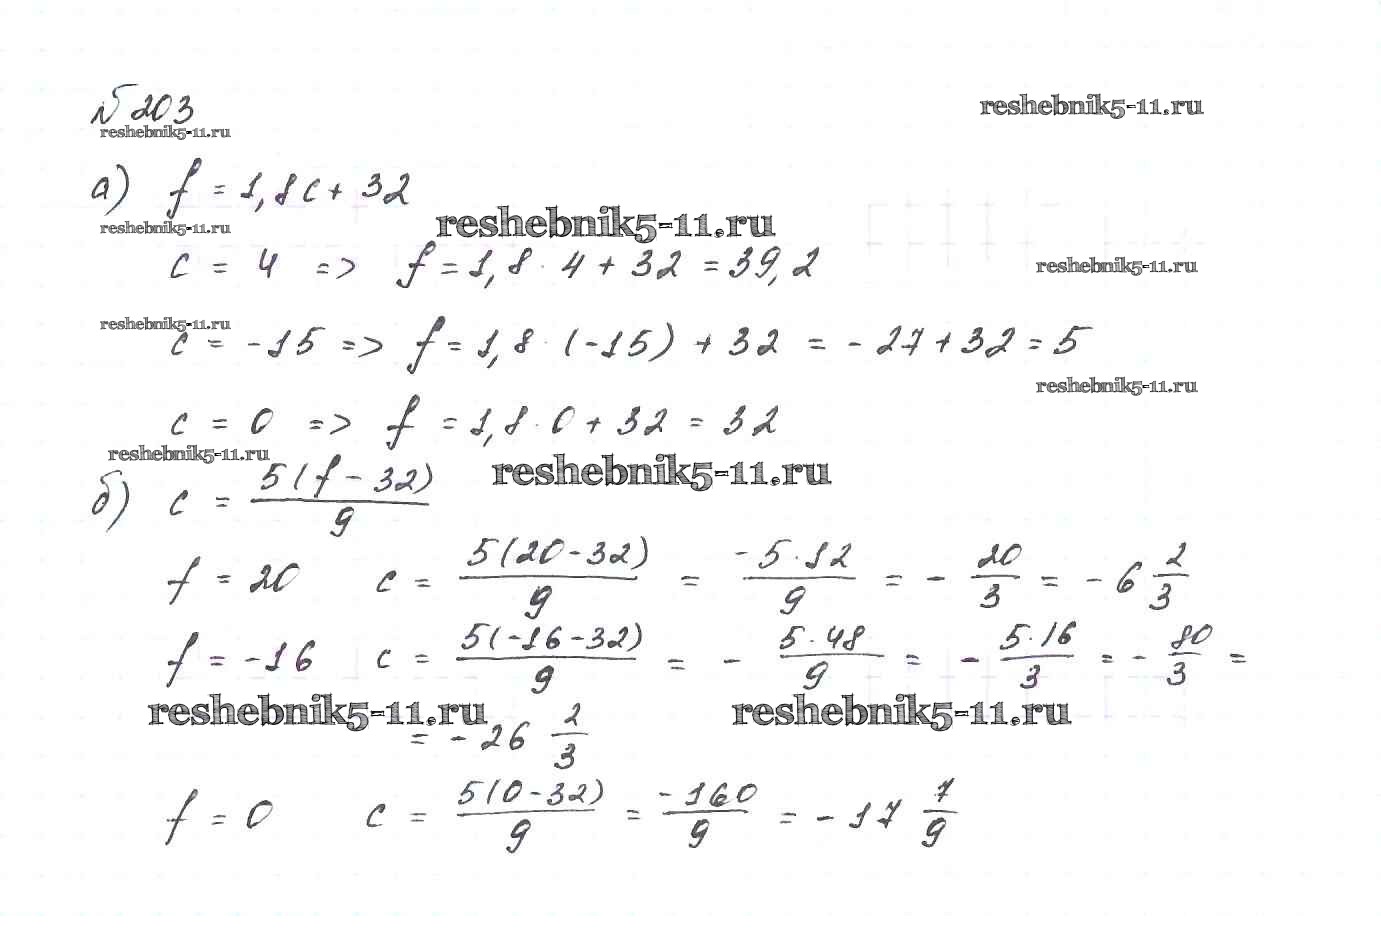 № 203
reshebnik5-11.ru
reshebnik5-11.ru
а) f = 1,8c + 32
reshebnik5-11.ru
reshebnik5-11.ru
c = 4 => f = 1,8 · 4 + 32 = 39,2
reshebnik5-11.ru
reshebnik5-11.ru
c = -15 => f = 1,8 · (-15) + 32 = -27 + 32 = 5
reshebnik5-11.ru
c = 0 => f = 1,8 · 0 + 32 = 32
reshebnik5-11.ru
reshebnik5-11.ru
б) c = 5(f - 32)/9
f = 20 c = 5(20-32)/9 = -5·12/9 = - 20/3 = -6 2/3
f = -16 c = 5(-16-32)/9 = - 5·48/9 = - 5·16/3 = - 80/3 =
reshebnik5-11.ru
reshebnik5-11.ru
= -26 2/3
f = 0 c = 5(0-32)/9 = -160/9 = -17 7/9